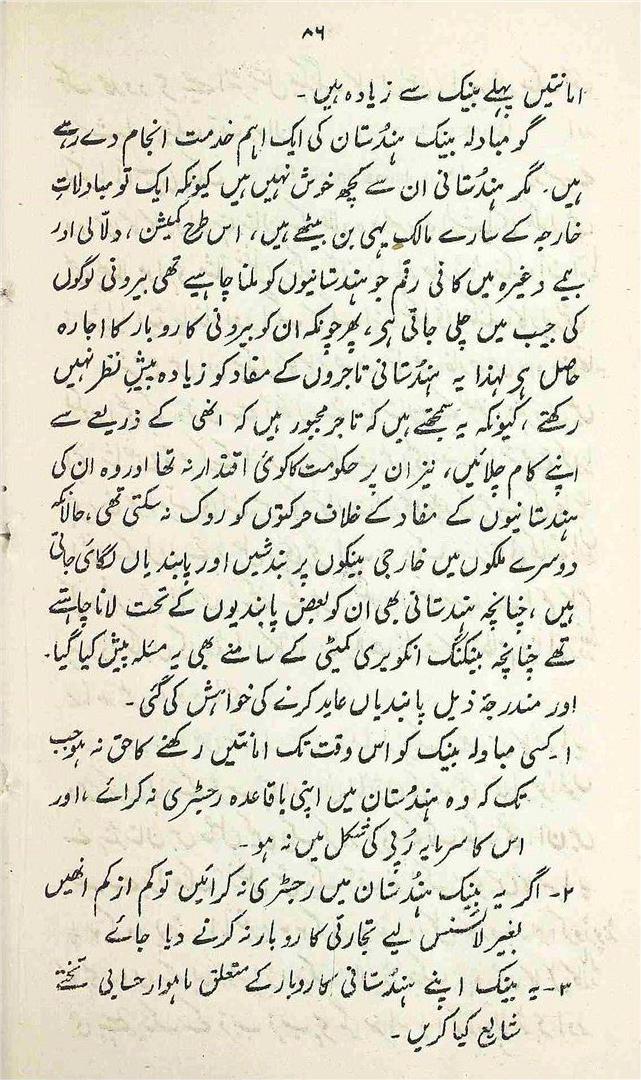 ۸۶
امانتیں پہلے بینک سے زیادہ ہیں ۔
گو مبادلہ بینک ہندُستان کی ایک اہم خدمت انجام دے رہے
ہیں۔ مگر ہندُستانی ان سے کچھ خوش نہیں ہیں کیونکہ ایک تو مبادلاتِ
خارجہ کے سارے مالک یہی بن بیٹھے ہیں، اس طرح کمیشن، دلّالی اور
بیمے وغیرہ میں کافی رقم جو ہندستانیوں کو ملنا چاہیے تھی بیرونی لوگوں
کی جیب میں چلی جاتی ہی، پھر چونکہ ان کو بیرونی کاروبار کا اجارہ
حاصل ہی لہٰذا یہ ہندُستانی تاجروں کے مفاد کو زیادہ پیشِ نظر نہیں
رکھتے، کیونکہ یہ سمجھتے ہیں کہ تاجر مجبور ہیں کہ انھی کے ذریعے سے
اپنے کام چلائیں، نیز ان پر حکومت کا کوئی اقتدار نہ تھا اور وہ ان کی
ہندستانیوں کے مفاد کے خلاف حرکتوں کو روک نہ سکتی تھی، حالانکہ
دوسرے ملکوں میں خارجی بینکوں پر بندشیں اور پابندیاں لگائی جاتی
ہیں، چنانچہ ہندستانی بھی ان کو بعض پابندیوں کے تحت لانا چاہتے
تھے چنانچہ بینکنگ انکویری کمیٹی کے سامنے بھی یہ مسئلہ پیش کیا گیا۔
اور مندرجۂ ذیل پابندیاں عاید کرنے کی خواہش کی گئی ۔
۱۔ کسی مبادلہ بینک کو اس وقت تک امانتیں رکھنے کا حق نہ ہو جب
تک کہ وہ ہندُستان میں اپنی باقاعدہ رجسٹری نہ کرائے، اور
اس کا سرمایہ رُپی کی شکل میں نہ ہو ۔
۲۔ اگر یہ بینک ہندُستان میں رجسٹری نہ کرائیں تو کم از کم انھیں
بغیر لائسنس لیے تجارتی کاروبار نہ کرنے دیا جائے
۳۔ یہ بینک اپنے ہندُستانی کاروبار کے متعلق ماہوار حسابی تختے
شایع کیا کریں ۔